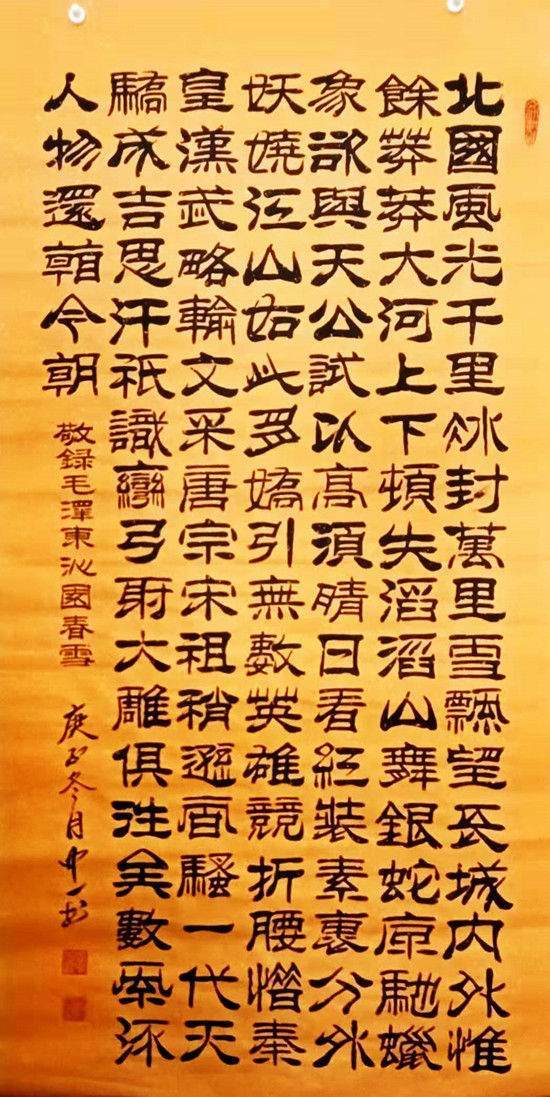 北國風光千里冰封萬里雪飄望長城内外惟
餘莽莽大河上下頓失滔滔山舞銀蛇原馳蠟
象欲與天公試以高須晴日看紅裝素裹分外
妖嬈江山如此多嬌引無數英雄競折腰惜秦
皇漢武略輸文采唐宗宋祖稍遜風騷一代天
驕成吉思汗祇識彎弓射大雕俱往矣數風流
人物還今朝
敬録毛澤東沁園春雪
庚子冬月中一書